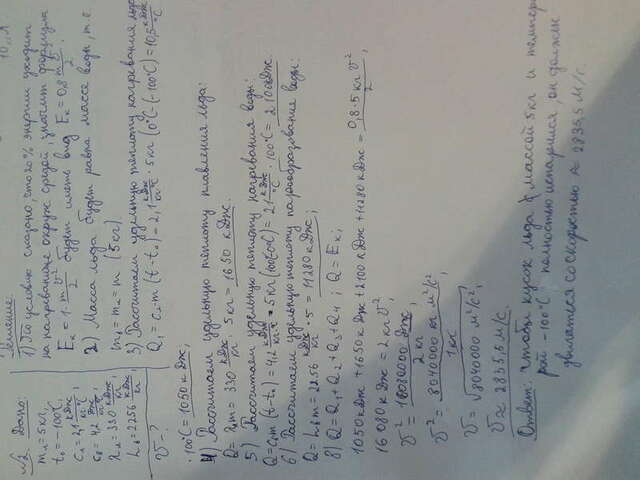 №2 Дано:
m₁ = 5 кг,
t₀ = -100°C
c₁ = 2,1 кДж/кг·°C,
c₂ = 4,2 кДж/кг·°C,
λ = 330 кДж/кг,
L = 2256 кДж/кг
v - ?
Решение:
1) По условию сказано, что 20% энергии уходит
на нагревание окруж. средой, значит формула
Eк = 1·m·v²/2 будет иметь вид Eк = 0,8 m v²/2
2) Масса льда будет равна массе воды, т. е.
m₁ = m₂ = m (5 кг)
3) Рассчитаем удельную теплоту нагревания льда
Q₁ = c₁m (t - t₀) = 2,1 кДж/кг·°C · 5 кг (0°C - (-100°C)) = 10,5 кДж/°C
· 100°C = 1050 кДж;
4) Рассчитаем удельную теплоту плавления льда:
Q = λm = 330 кДж/кг · 5 кг = 1650 кДж.
5) Рассчитаем удельную теплоту нагревания воды:
Q = c₂m (t - t₀) = 4,2 кДж/кг·°C · 5 кг (100°C - 0°C) = 21 кДж/°C · 100°C = 2100 кДж.
6) Рассчитаем удельную теплоту парообразование воды:
Q = Lm = 2256 кДж/кг · 5 = 11280 кДж;
8) Q = Q₁ + Q₂ + Q₃ + Q₄; Q = Eк;
1050 кДж + 1650 кДж + 2100 кДж + 11280 кДж = 0,8·5 кг v²/2;
16080 кДж = 2 кг v²
v² = 16080000 Дж/2 кг;
v² = 8040000 кг м²/с²/1 кг
v = √8040000 м²/с²;
v ≈ 2835,5 м/с
Ответ: чтобы кусок льда массой 5 кг и темпера
рой -100°C полностью испарился, он должен
двигаться со скоростью ≈ 2835,5 м/с.